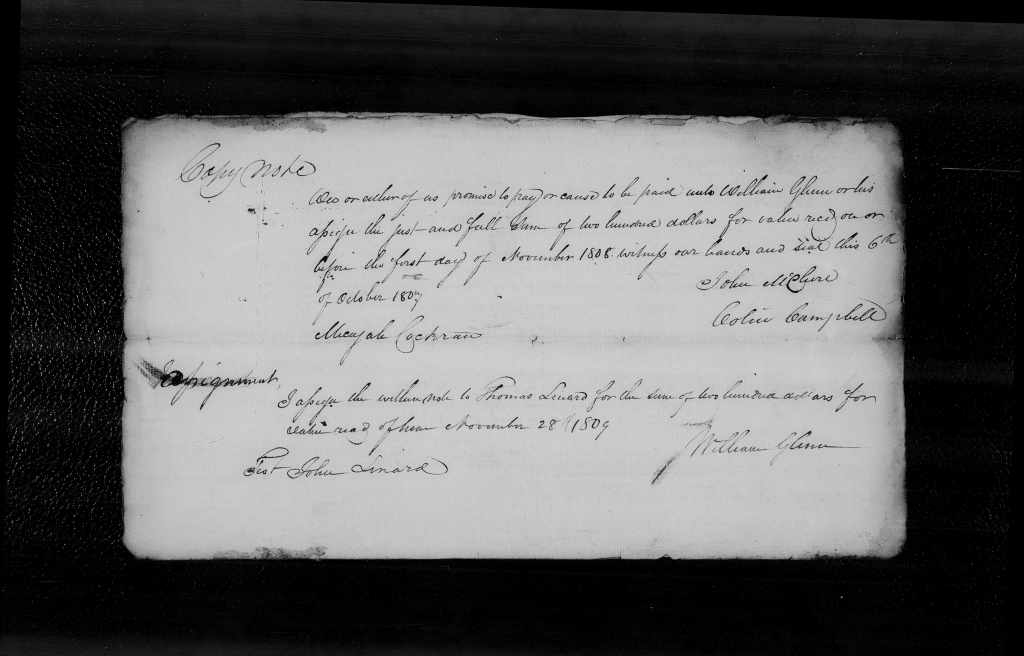 Copy Note
We or either of us promise to pay or cause to be paid unto William Glenn or his
assign the just and full sum of two hundred dollars for value recd on or
before the first day of November 1808. witness our hands and seal this 6th
of October 1807
John McClure
Colin Campbell
Micajah Cockran
Assignment
I assign the within note to Thomas Linard for the sum of two hundred dollars for
value recd of him November 28 1809
William Glenn
Test John Linard